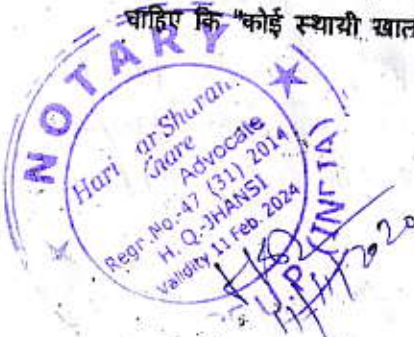 चाहिए कि "कोई स्थायी खाल
NOTARY
Hari ar Sharan
Advocate
Regr. No.-47 (31) 2014
H. Q.-JHANSI
Validity 11 Feb. 2024
U.P. (INDIA)
2020